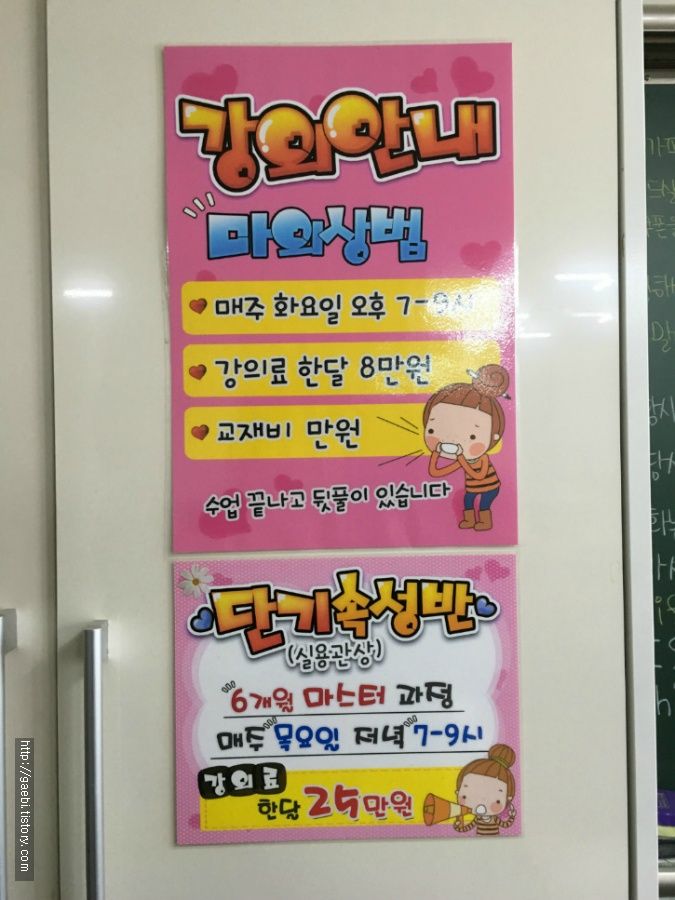 강의안내
마의상법
매주 화요일 오후 7-9시
강의료 한달 8만원
교재비 만원
수업 끝나고 뒷풀이 있습니다
단기속성반
(실용관상)
6개월 마스터 과정
매주 목요일 저녁 7-9시
강의료
한달 25만원
http://gaebi.tistory.com